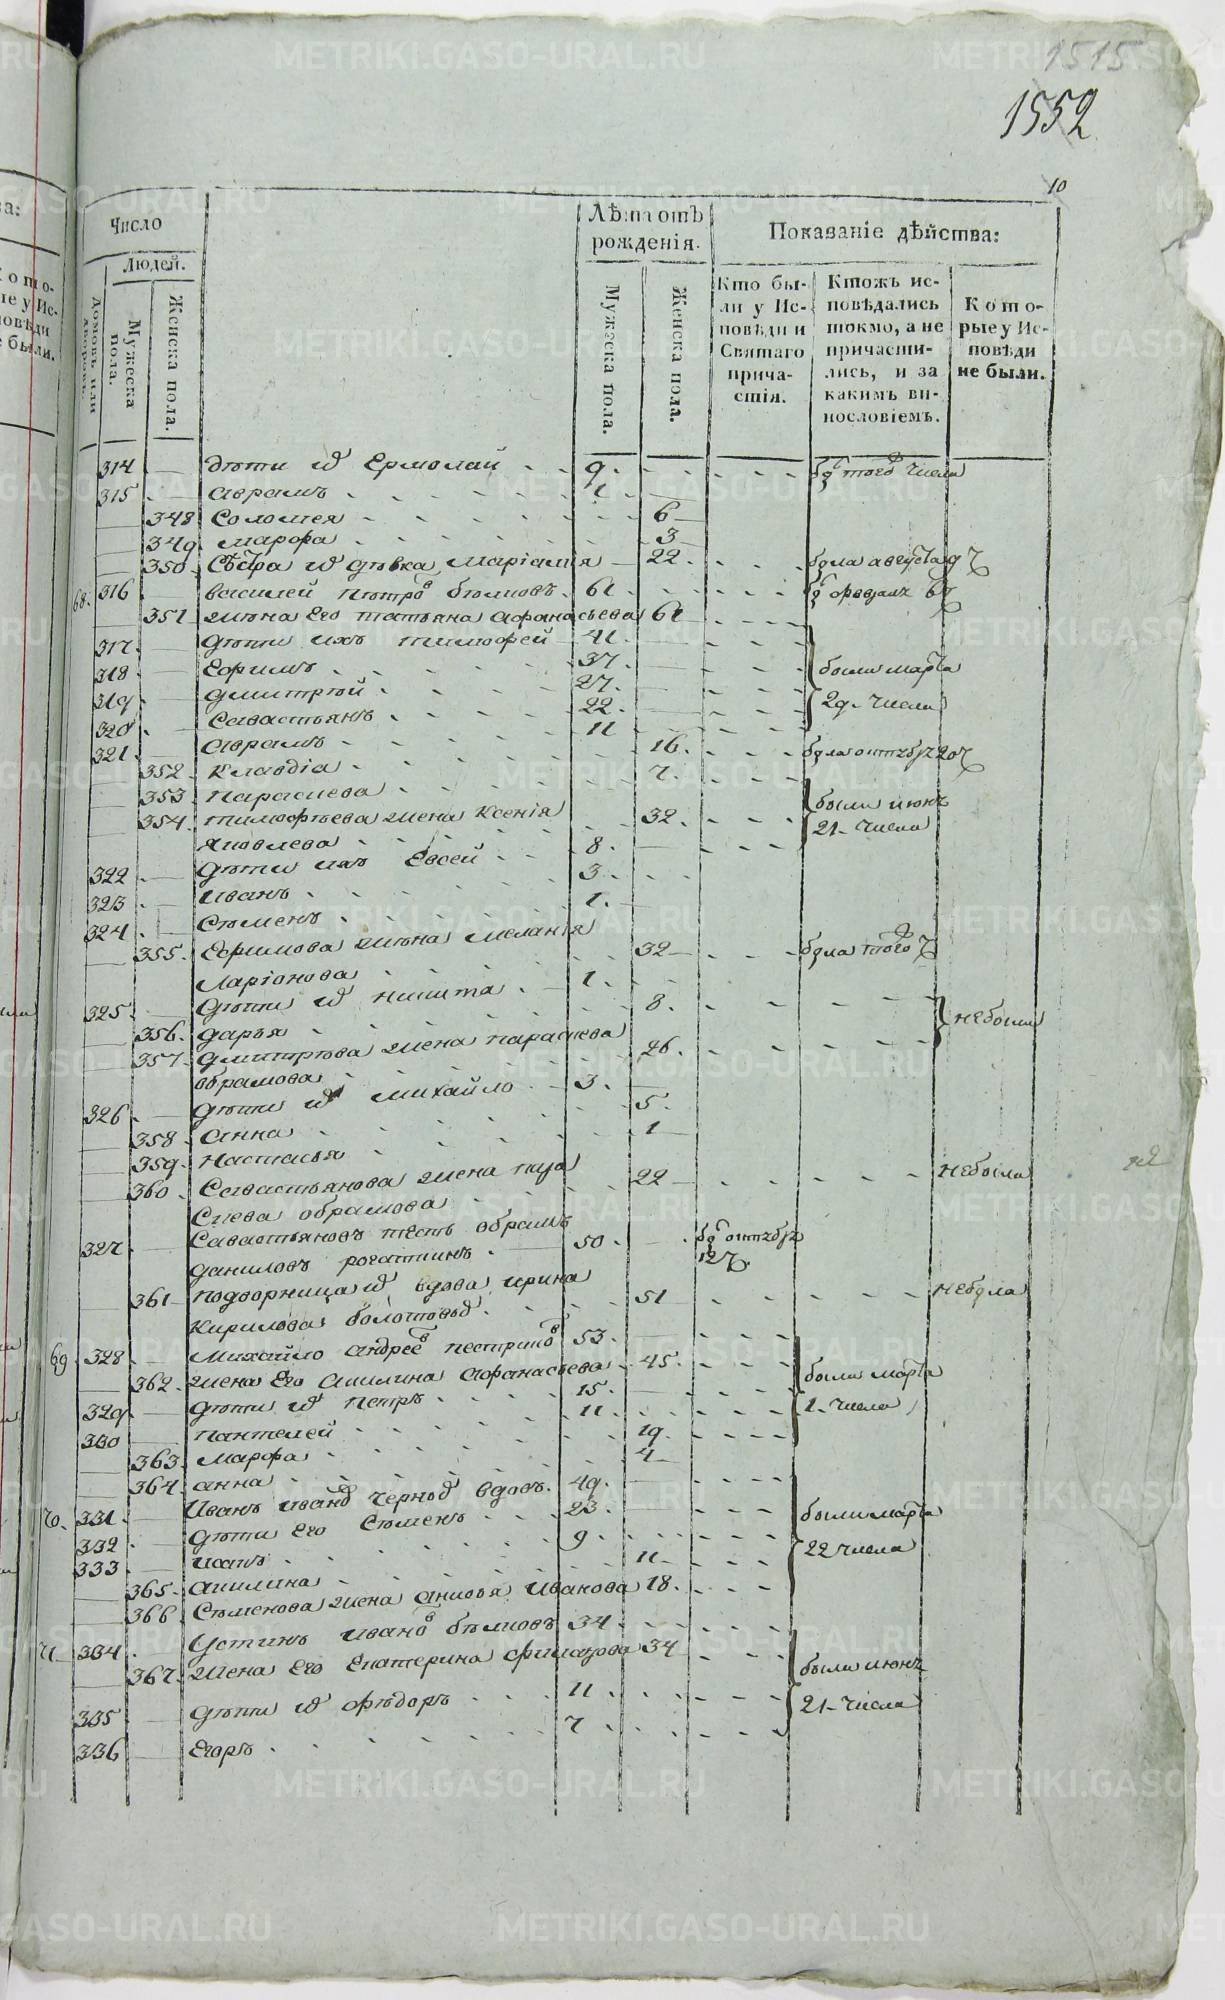 1515
1552
10
Число
Людей.
Домовъ или дворовъ.
Мужеска пола.
Женска пола.
Лѣта отъ рожденія.
Мужеска пола.
Женска пола.
Показаніе дѣйства:
Кто бы-
ли у Ис-
повѣди и
Святаго
прича-
стія.
Ктожъ ис-
повѣдались
токмо, а не
причасти-
лись, и за
какимъ ви-
нословіемъ.
Кото-
рые у Ис-
повѣди
не были.
314 дѣти Ермолай 9 того числа
315 Аврамъ 1
348 Соломея 6
349 Марфа 3
350 Сестра дѣвка Маріамія 22 была августа 9 ч
68. 316 Василей Петровъ Бѣлковъ 61 6 ч
351 жена Его Татьяна Афанасьева 61
317 дѣти ихъ Тимофей 41
318 Ефимъ 37 были марта
319 Дмитрей 27 29 числа
320 Савастьянъ 22
321 Аврамъ 11
352 Клавдіа 16 была октября 20 ч
353 Параскева 7
354 Тимофеева жена Ксенія были июня
Яковлева 32 21 числа
322 дѣти ихъ Евсей 8
323 Иванъ 3
324 Семенъ 1
355 Ефимова жена Меланія
Ларіонова 32 была того ч
325 дѣти Никита 1
356 Дарья 8 не были
357 Дмитріева жена Параскева
Обрамова 26
326 дѣти Михайло 3
358 Анна 5
359 Настасья 1
360 Савастьянова жена Пара
скева Обрамова 22 не была
327 Савастьяновъ тесть Обрамъ
Даниловъ 50 октября
12 ч
361 подворница вдова Ирина
Кирилова 51 не была
69 328 Михайло Андреевъ 53
362 жена Его Акилина Афанасьева 45 были марта
329 дѣти Петръ 15 1 числа
330 Пантелей 11
363 Марфа 19
364 Анна 4
70. 331 Иванъ Ивановъ вдовъ 49 были марта
332 дѣти Его Семенъ 23
333 9 22 числа
365 Акилина 11
366 Семенова жена Иванова 18
71 334 Устинъ Ивановъ Бѣлковъ 34
367 жена Его Екатерина 34 были июня
335 дѣти Федоръ 11 21 числа
336 Егоръ 7
METRIKI.GASO-URAL.RU